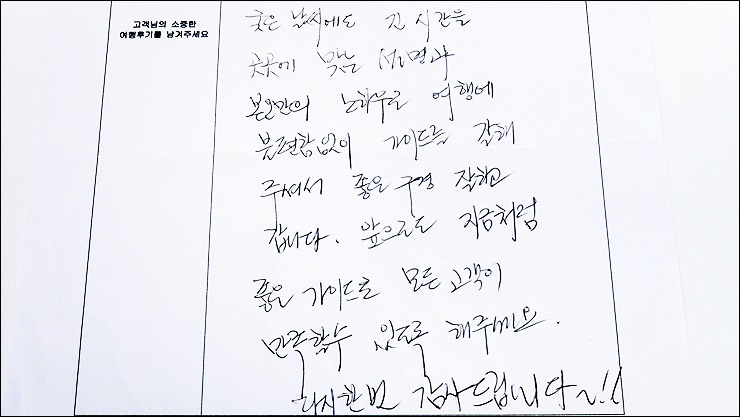 고객님의 소중한
여행후기를 남겨주세요
궂은 날씨에도 긴 시간을
곳곳에 맞는 설명과
본인만의 노하우로 여행에
불편함없이 가이드를 잘해
주셔서 좋은 구경 잘하고
갑니다. 앞으로도 지금처럼
좋은 가이드로 모든 고객이
만족할수 있도록 해주세요.
다시한번 감사드립니다~!!